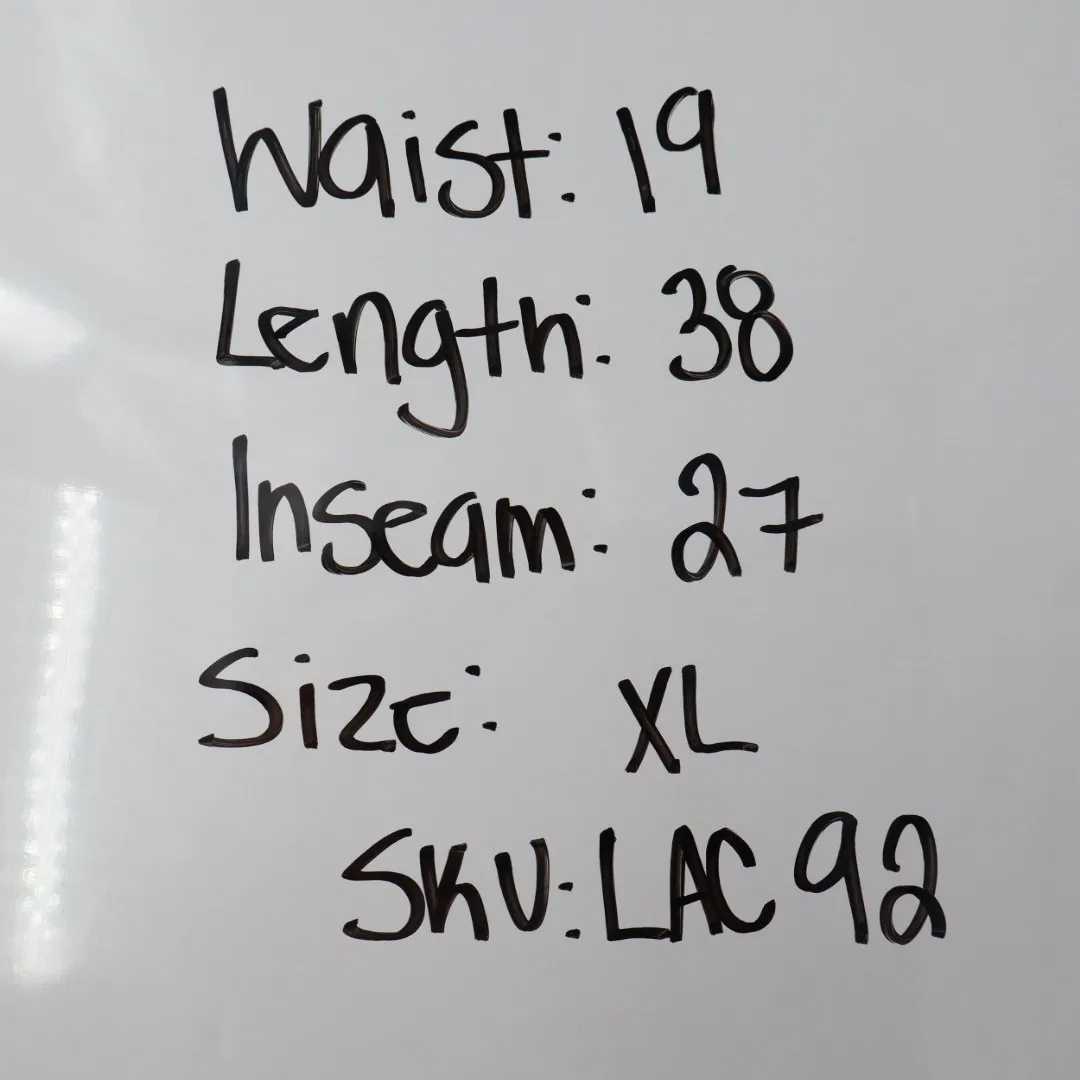 Waist: 19
Length: 38
Inseam: 27
Size: XL
SKU: LAC 92